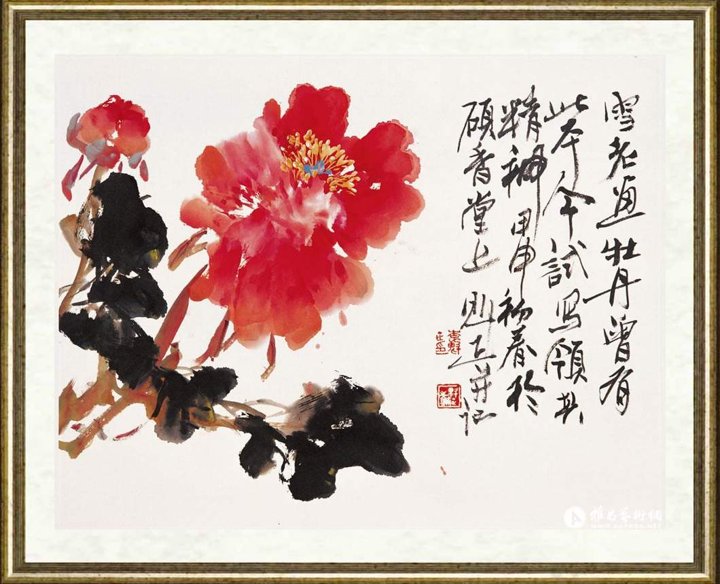 雪老画牡丹曾有
此本今试写领其
精神甲申初春於
硕香堂上则正并记
雅昌艺术网